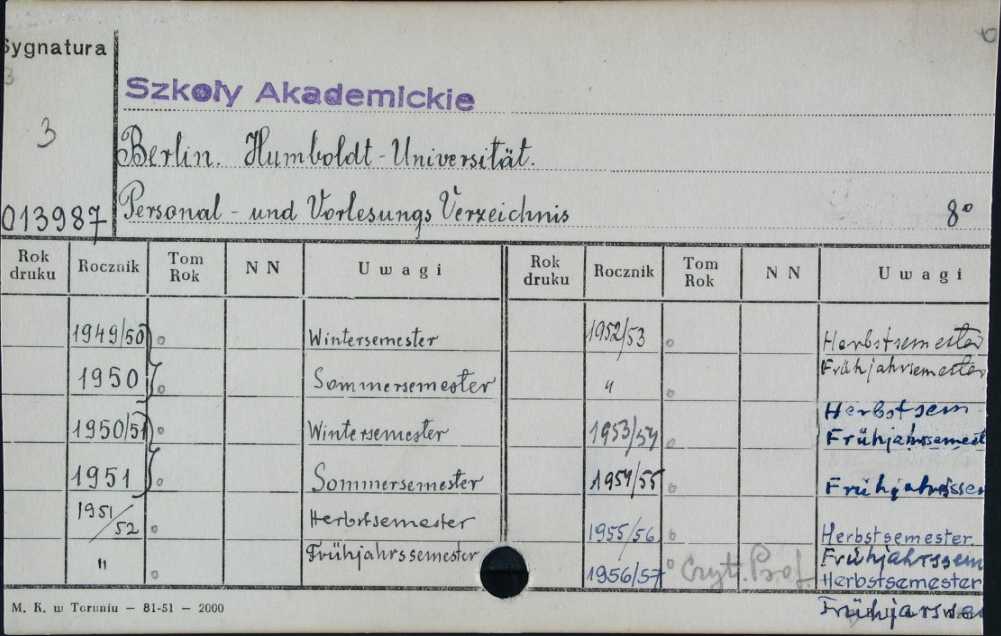 Sygnatura
3
Szkoły Akademickie
3
Berlin. Humboldt-Universität.
013987
Personal- und Vorlesungs Verzeichnis 8°
Rok druku Rocznik Tom Rok N N Uwagi Rok druku Rocznik Tom Rok N N Uwagi
1949/50 Wintersemester 1952/53 Herbstsemester
1950 Sommersemester " Frühjahrsemester
Herbstsem
1950/51 Wintersemester 1953/54 Frühjahrssemest
1951 Sommersemester 1954/55 Frühjahrsse
1951/52 Herbstsemester 1955/56 Herbstsemester.
" Frühjahrssemester Frühjahrssem
1956/57 Czyt. Prof. Herbstsemester
M. K. w Toruniu — 81-51 — 2000